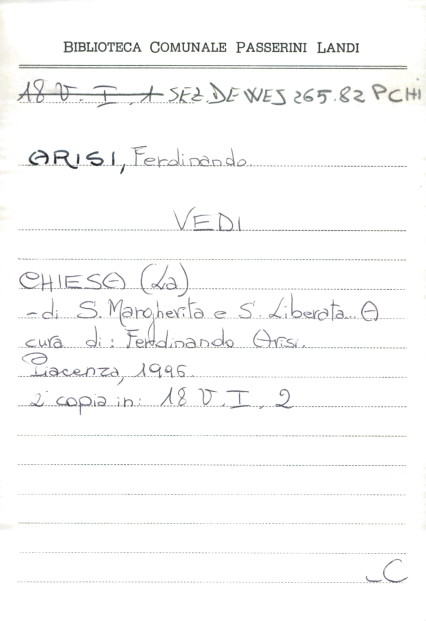 BIBLIOTECA COMUNALE PASSERINI LANDI
18 V. I. 1 SEZ. DEWES 265.82 PCHI
ARISI, Ferdinando
VEDI
CHIESA (La)
- di S. Margherita e S. Liberata. A
cura di: Ferdinando Arisi.
Piacenza, 1996.
2ª copia in: 18 V. I. 2
C